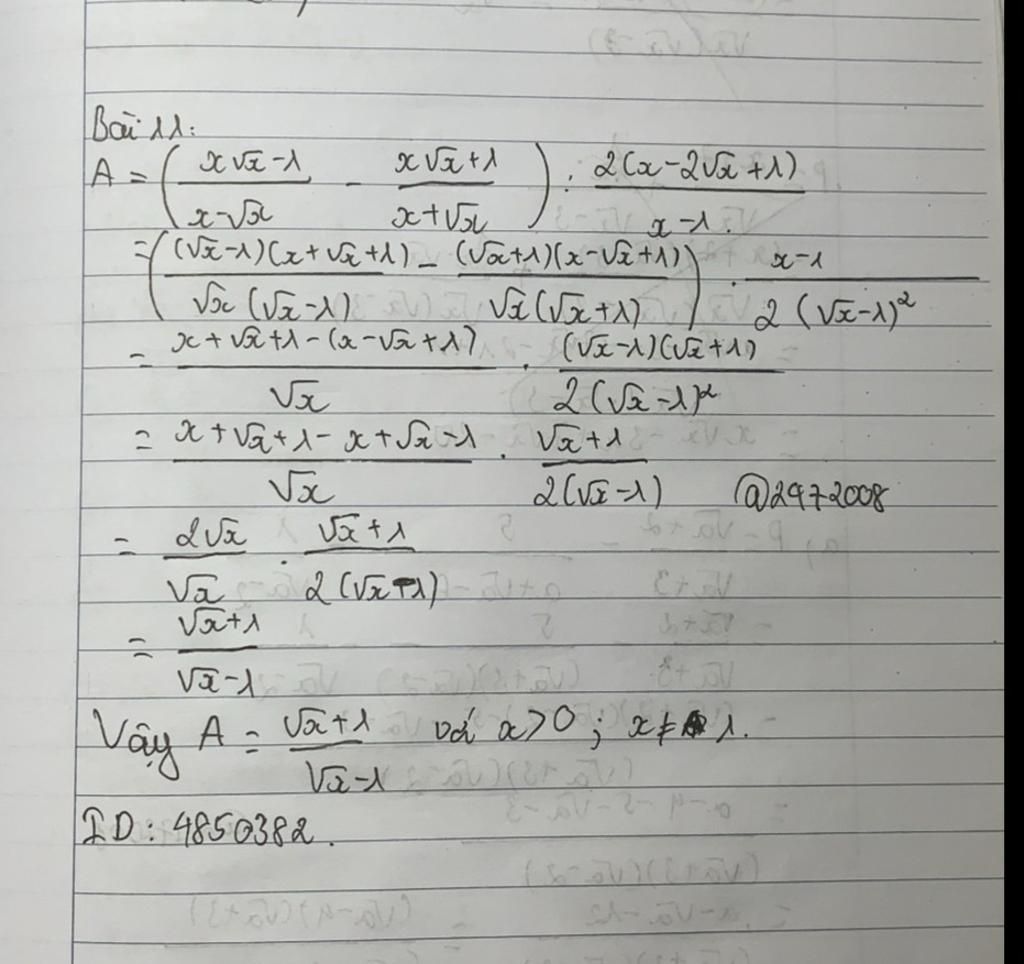 Bài 11:
A = ( (x√x - 1)/(x - √x) - (x√x + 1)/(x + √x) ) : 2(x - 2√x + 1)/(x - 1).
= ( (√x - 1)(x + √x + 1)/(√x(√x - 1)) - (√x + 1)(x - √x + 1)/(√x(√x + 1)) ) . (x - 1)/(2(√x - 1)²)
= (x + √x + 1 - (x - √x + 1))/√x . (√x - 1)(√x + 1)/(2(√x - 1)²)
= (x + √x + 1 - x + √x - 1)/√x . (√x + 1)/(2(√x - 1))
@2472008
= 2√x/√x . (√x + 1)/(2(√x - 1))
= (√x + 1)/(√x - 1)
Vậy A = (√x + 1)/(√x - 1) với x > 0 ; x ≠ 1.
ID: 4850382.